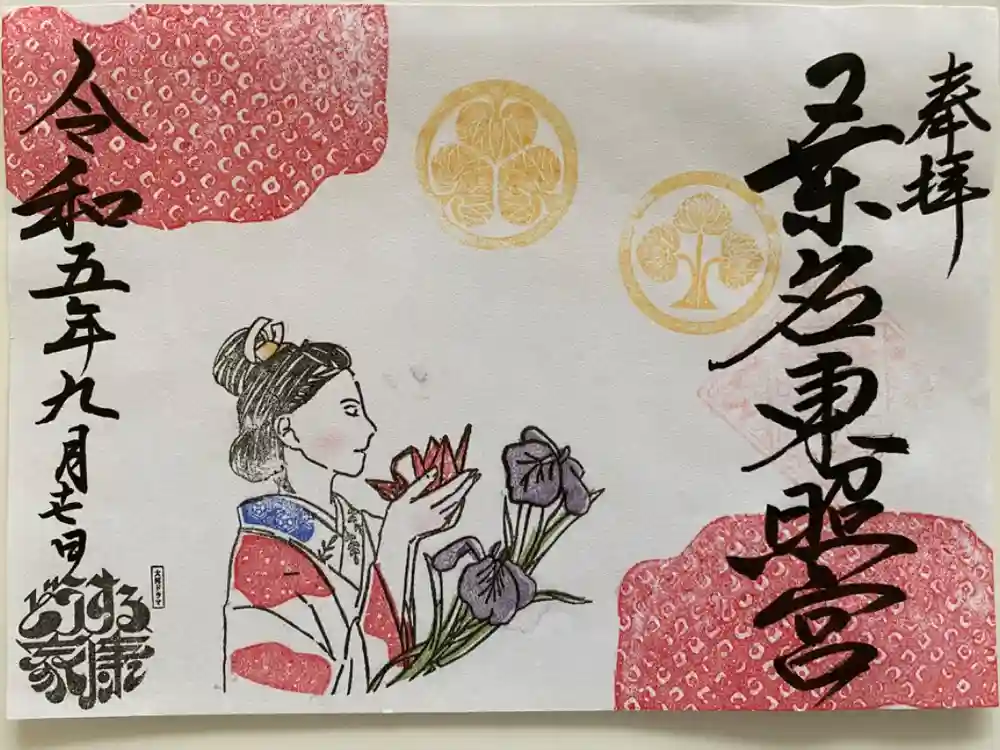 奉拝
桑名東照宮
令和五年九月七日
大河ドラマ
どうする
家康